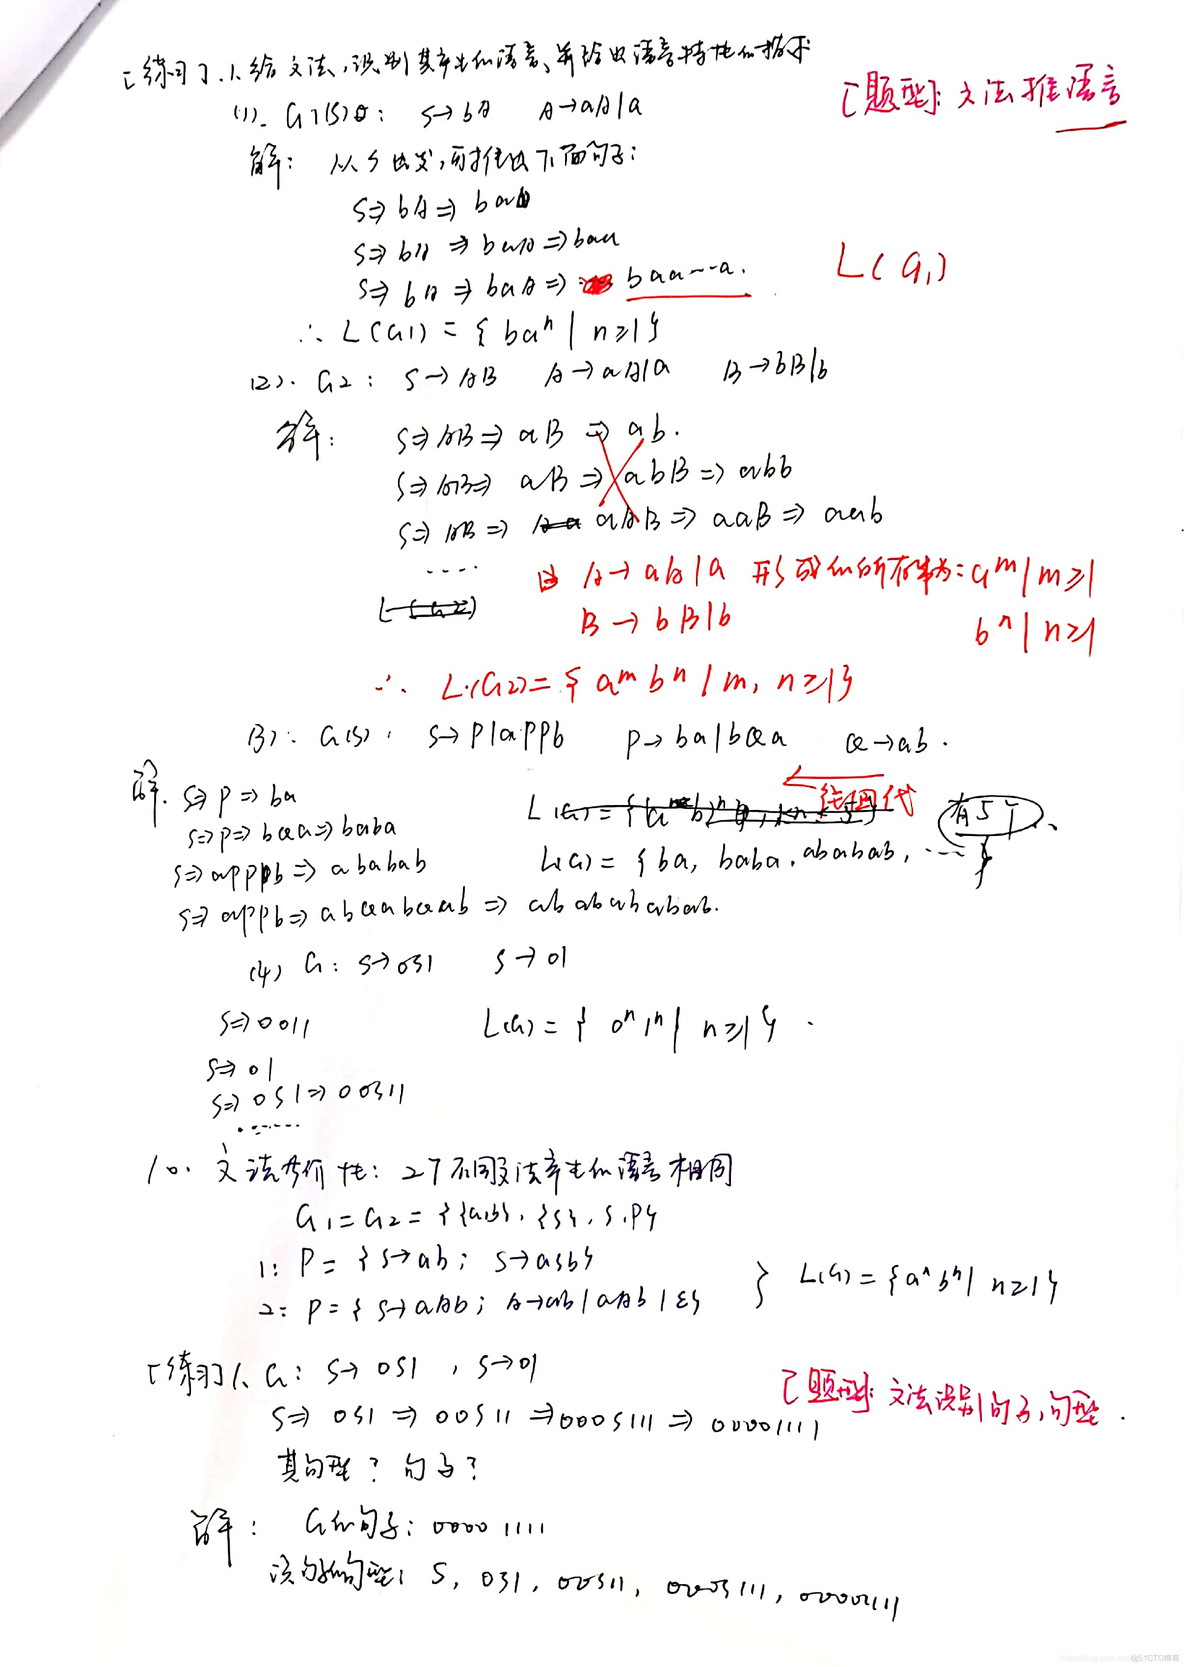 [练习]. 1. 给文法,识别其产生的语言、并给出语言特性的描述
[题型]: 文法推语言
(1). G1(S): S→bA A→aA|a
解: 从S出发,可推出下面句子:
S⇒bA⇒ba
S⇒bA⇒baA⇒baa
S⇒bA⇒baA⇒ baa---a.
L(G1)
∴ L(G1) = { baⁿ | n≥1 }
(2). G2: S→AB A→aA|a B→bB|b
解: S⇒AB⇒aB⇒ab.
S⇒AB⇒ aB⇒abB⇒abb
S⇒AB⇒ aAB⇒aaB⇒aab
....
由 A→aA|a 形成的所有串为: aᵐ|m≥1
B→bB|b bⁿ|n≥1
∴ L(G2)={ aᵐbⁿ | m, n≥1 }
(3). G(S): S→P|aPPb P→ba|bQa Q→ab.
解. S⇒P⇒ba
往回代
有5个、
S⇒P⇒bQa⇒baba
S⇒aPPb⇒ababab
L(G) = { ba, baba, ababab, ---- }
S⇒aPPb⇒abQabQab⇒ababababab.
(4) G: S→0S1 S→01
S⇒0011
L(G) = { 0ⁿ1ⁿ | n≥1 } .
S⇒01
S⇒0S1⇒00S11
......
10. 文法等价性: 2个不同文法产生的语言相同
G1=G2={{a,b},{S},S,P}
1: P={S→ab; S→aSb}
2: P={S→aAb; A→ab|aAb|ε}
} L(G)={aⁿbⁿ| n≥1}
[练习]1、G: S→0S1 , S→01
[题型]: 文法识别句子,句型 .
S⇒0S1⇒00S11⇒000S111⇒00001111
其句型? 句子?
解: G的句子: 00001111
该句子的句型: S, 0S1, 00S11, 000S111, 00001111
@51CTO博客